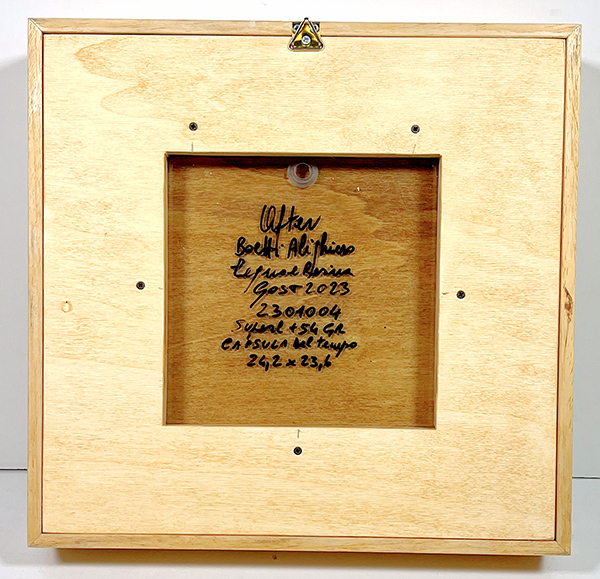 After
Boetti Alighiero
Legno e Resina
Gost 2023
2301004
+54 GR
CAPSULA del tempo
24,2 x 23,6